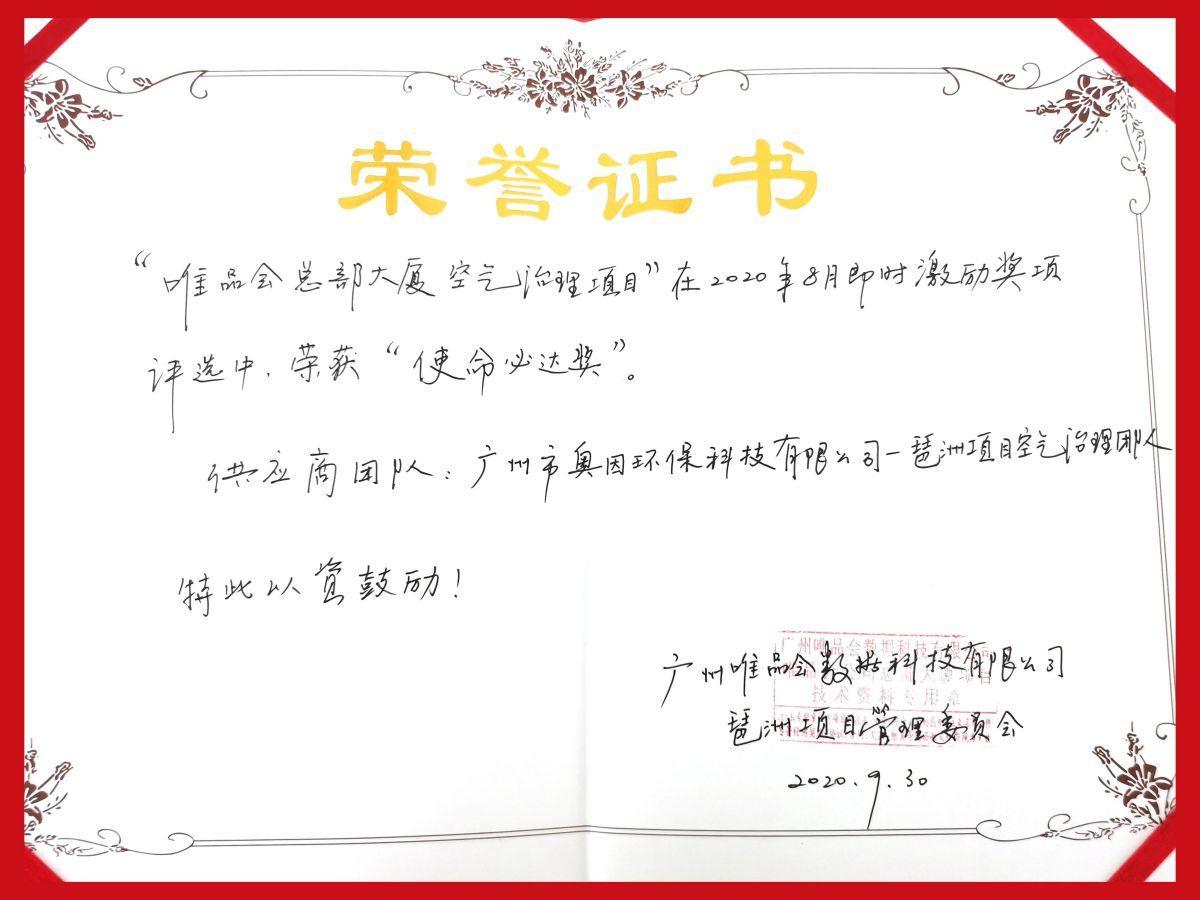 荣誉证书
“唯品会总部大厦空气治理项目”在2020年8月即时激励奖项
评选中，荣获“使命必达奖”。
供应商团队：广州市奥因环保科技有限公司-琶洲项目空气治理团队
特此以资鼓励！
广州唯品会数据科技有限公司
技术资料专用章
广州唯品会数据科技有限公司
琶洲项目管理委员会
2020.9.30